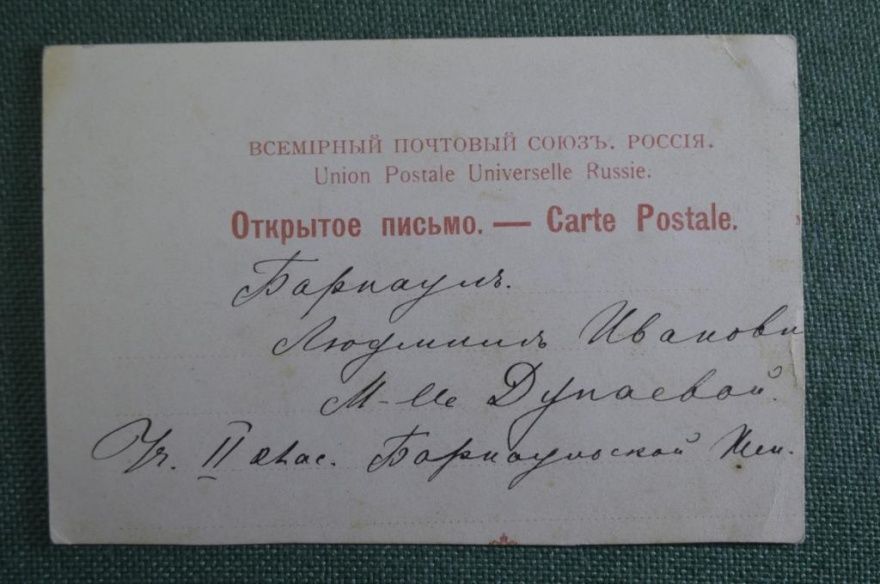 ВСЕМІРНЫЙ ПОЧТОВЫЙ СОЮЗЪ. РОССІЯ.
Union Postale Universelle Russie.
Открытое письмо. — Carte Postale.
Барнаулъ.
Людмилѣ Иванови
М-lle Дунаевой.
Уч. II клас. Барнаульской Жен.